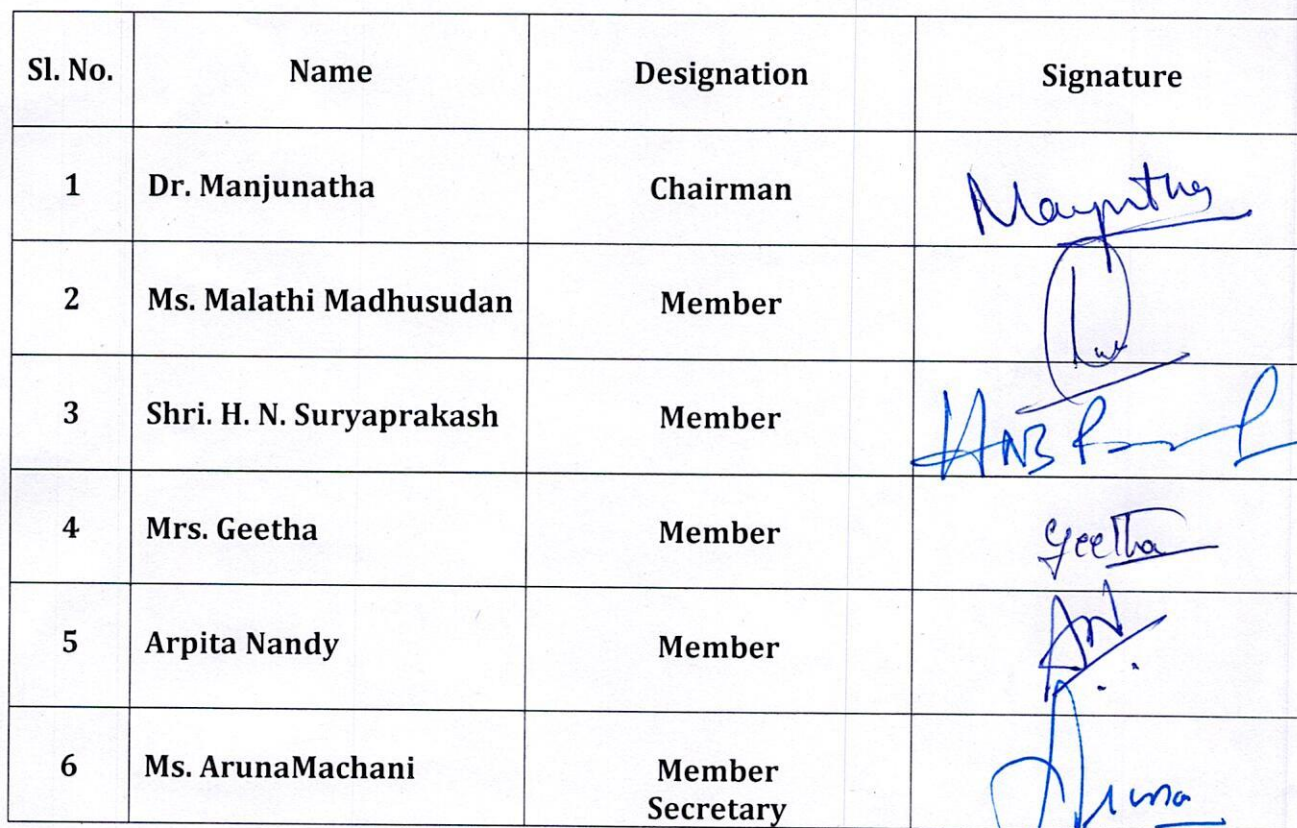 Sl. No. Name Designation Signature
1 Dr. Manjunatha Chairman
2 Ms. Malathi Madhusudan Member
3 Shri. H. N. Suryaprakash Member
4 Mrs. Geetha Member Geetha
5 Arpita Nandy Member
6 Ms. ArunaMachani Member
Secretary